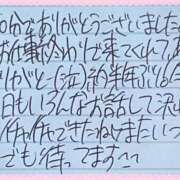 分でありがとうございました
お仕事終わりに来てくれてあ
りがと〜(泣)納豆
日もいろんなお話して沢
イチャイチャできたねまたいつ
でも待ってます^^